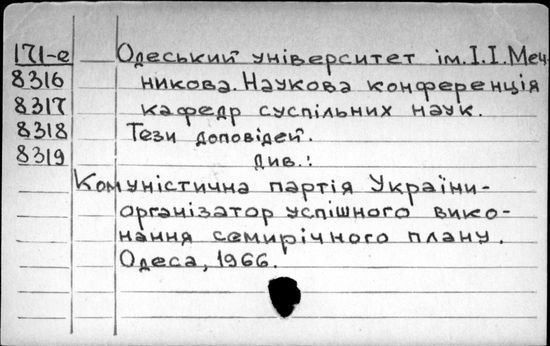 171-е Одеський університет ім. І. І. Меч-
8316 никова. Наукова конференція
8317 кафедр суспільних наук.
8318 Тези доповідей.
8319 див.:
Комуністична партія України-
організатор успішного вико-
нання семирічного плану.
Одеса, 1966.